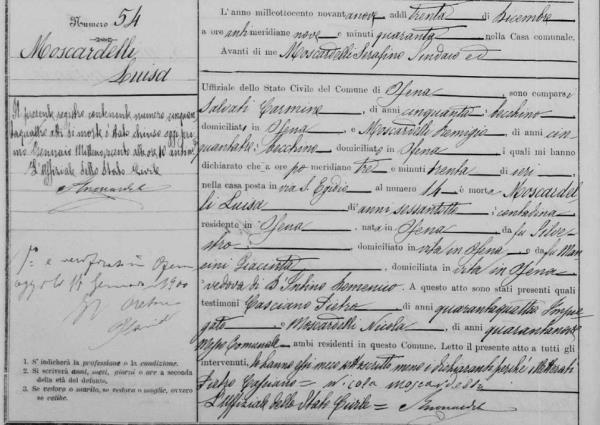 Numero 54
Moscardelli
Luisa
Il presente registro contenente numero cinquan
taquattro atti di morte è stato chiuso oggi pri
mo Gennaio Millenovecento alle ore 10 antim.
L'Uffiziale dello Stato Civile
1. S' indicherà la professione o la condizione.
2. Si scriverà anni, mesi, giorni o ore a seconda
della età del defunto.
3. Se vedovo o marito, se vedova o moglie, ovvero
se celibe.
L'anno milleottocento novantanove addì trenta di Dicembre
a ore antimeridiane nove e minuti quaranta nella Casa comunale.
Avanti di me Moscardelli Serafino Sindaco ed
Uffiziale dello Stato Civile del Comune di Ofena, sono comparsi
Salvati Carmine, di anni cinquanta: becchino
domiciliato in Ofena e Moscardelli Remigio, di anni cin
quantatre: becchino domiciliato in Ofena, i quali mi hanno
dichiarato che a ore po meridiane tre e minuti trenta di ieri,
nella casa posta in via S. Egidio al numero 14 è morta Moscardel
li Luisa d'anni sessantotto: contadina
residente in Ofena, nata in Ofena da fu Silve
stro: domiciliato in vita in Ofena e da fu Man
cini Giacinta, domiciliata in vita in Ofena
vedova di D'Intino Domenico. A questo atto sono stati presenti quali
testimoni Casciano Pietro di anni quarantaquattro Impie
gato e Moscardelli Nicola, di anni quarantanove
Messo Comunale ambi residenti in questo Comune. Letto il presente atto a tutti gli
intervenuti, lo hanno essi meco sottoscritto meno i dichiaranti perchè illetterati
Pietro Casciano = Nicola Moscardelli
L'Uffiziale dello Stato Civile =